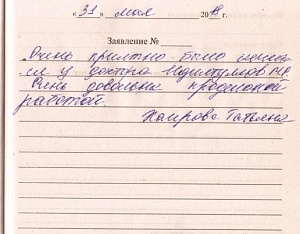 « 31 » мая 20 г.
Заявление № 
Очень приятно было лечить
ся у доктора
Очень довольна проделаной
работой.
Каирова Татьяна